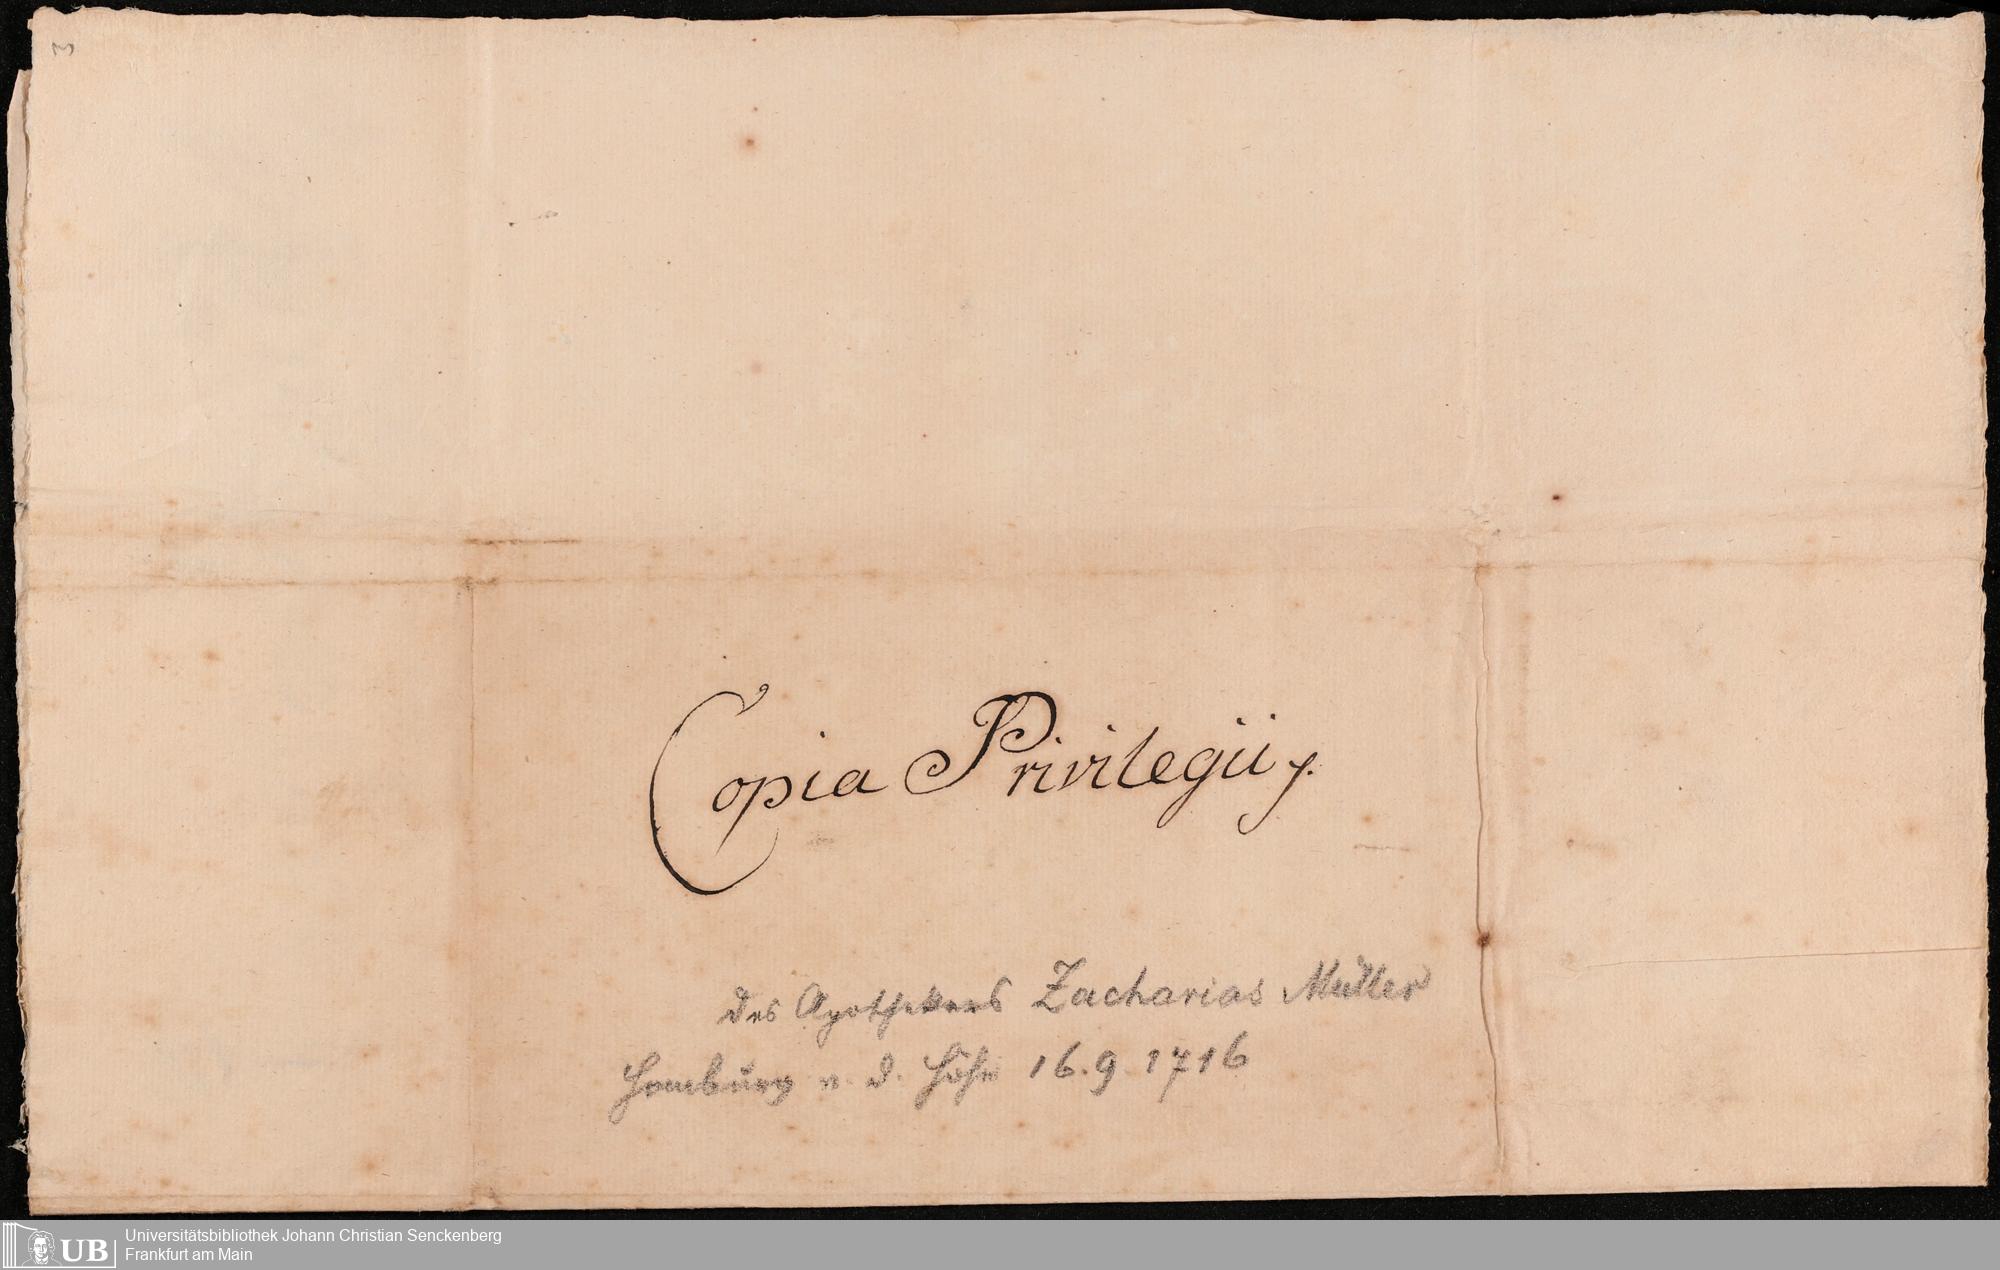 3
Copia Privilegii
des Apothekers Zacharias Müller
Homburg v. d. Höhe 16. 9. 1716
UB
Universitätsbibliothek Johann Christian Senckenberg
Frankfurt am Main